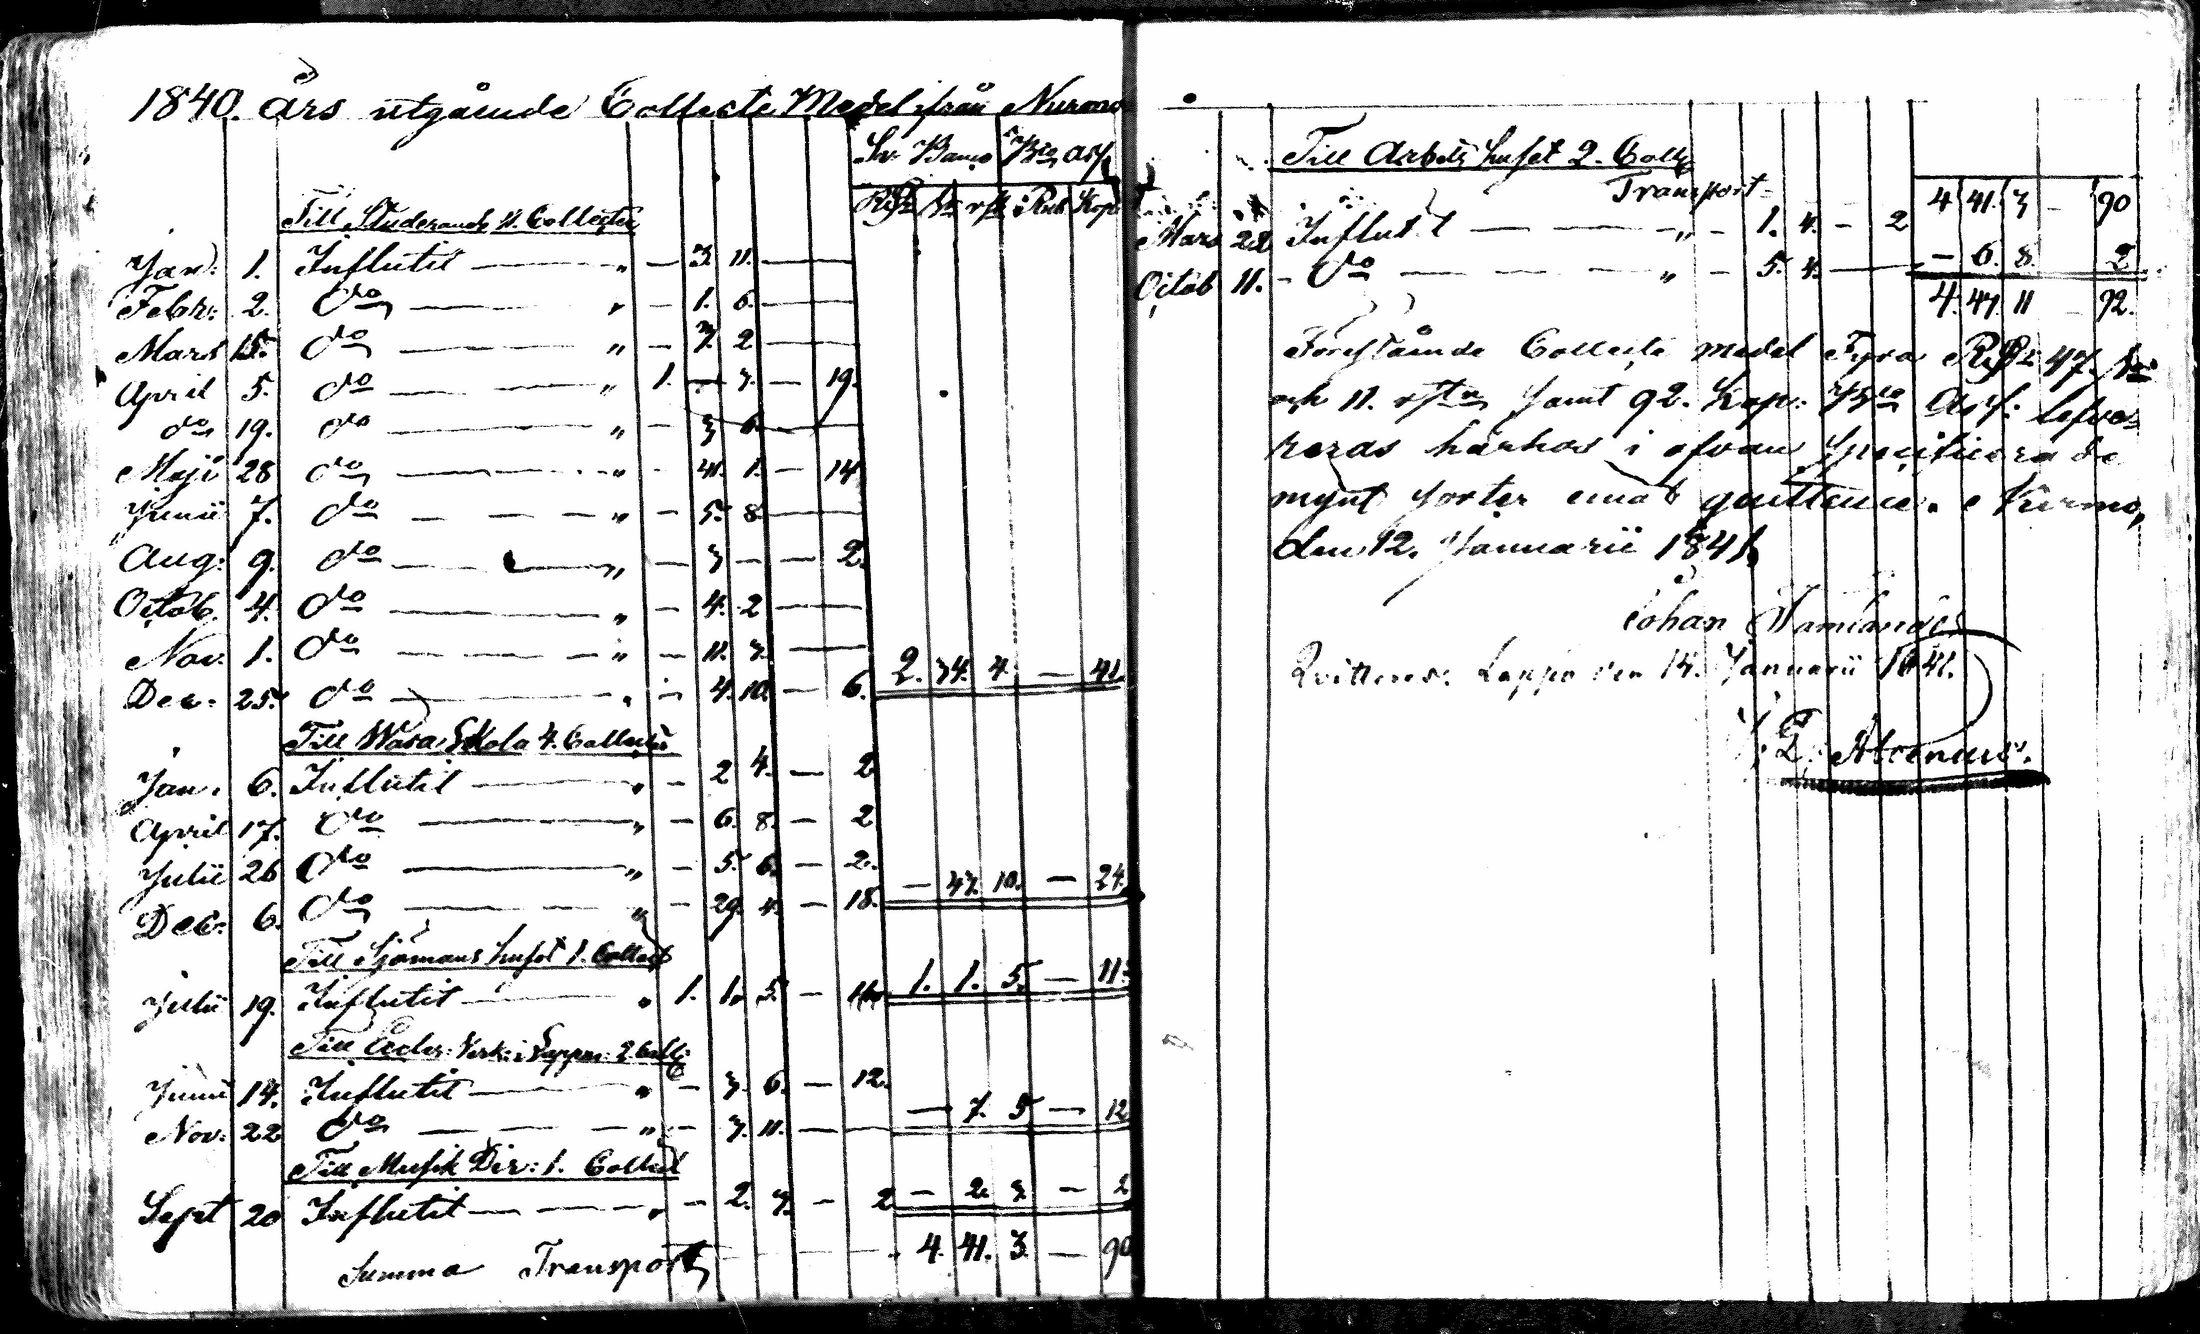 1840. Års utgående Collecte Medel ifrån Nurmo
Sv: Banco Bco Ass
RD sk rst Rub Kop
Till Studerande 11. Collecter
Jan: 1. Influtit — „ — 3 11. —
Febr: 2. do — „ — 1. 6. —
Mars 15. do — „ — 7. 2 —
April 5. do — „ 1. — 3. — 19.
do 19. do — „ — 3 6. —
Maji 28 do — „ — 41. 1. — 14
Junii 7. do — „ — 5. 8. —
Aug: 9. do — „ — 3 — — 2.
Octob. 4. do — „ — 4. 2 —
Nov. 1. do — „ — 11. 3. —
Dec: 25. do — „ — 4. 10. — 6. 2. 34. 4. — 41.
Till Wasa Skola 4. Collecter
Jan. 6. Influtit — „ — 2 4. — 2
April 17. do — „ — 6. 8. — 2
Julii 26 do — „ — 5. 6. — 2.
Dec: 6. do — „ — 29. 4. — 18. — 43. 10. — 24.
Till Sjömans huset 1. Collect
Julii 19. Influtit — „ 1. 1. 5. — 11. 1. 1. 5. — 11.
Till Eccles: Verk: i Lappm: 2 Coll:
Junii 14. Influtit — „ — 3. 6. — 12.
Nov: 22 do — „ — 3. 11. — — 7. 5 — 12
Till Musik Dir: 1. Collect
Sept 20 Influtit — „ — 2. 3. — 2 — 2. 3. — 2
Summa Transport 4. 41. 3. — 90
Till Arbets huset 2. Coll:
Transport 4 41. 3 — 90
Mars 22 Influtit — „ — 1. 4. — 2
Octob 11. do — „ — 5. 4. — — 6. 8. 2
4. 47. 11 — 92.
Förestående Collecte medel Fyra RD 47. sk
och 11. rst samt 92. Kop: Bco Ass: lefve-
reras härhos i ofvan specificerade
mynt sorter emot quittence. Nurmo,
den 12. Januarii 1841.
Johan
Qvitteras: Lappo den 14. Januarii 1841.